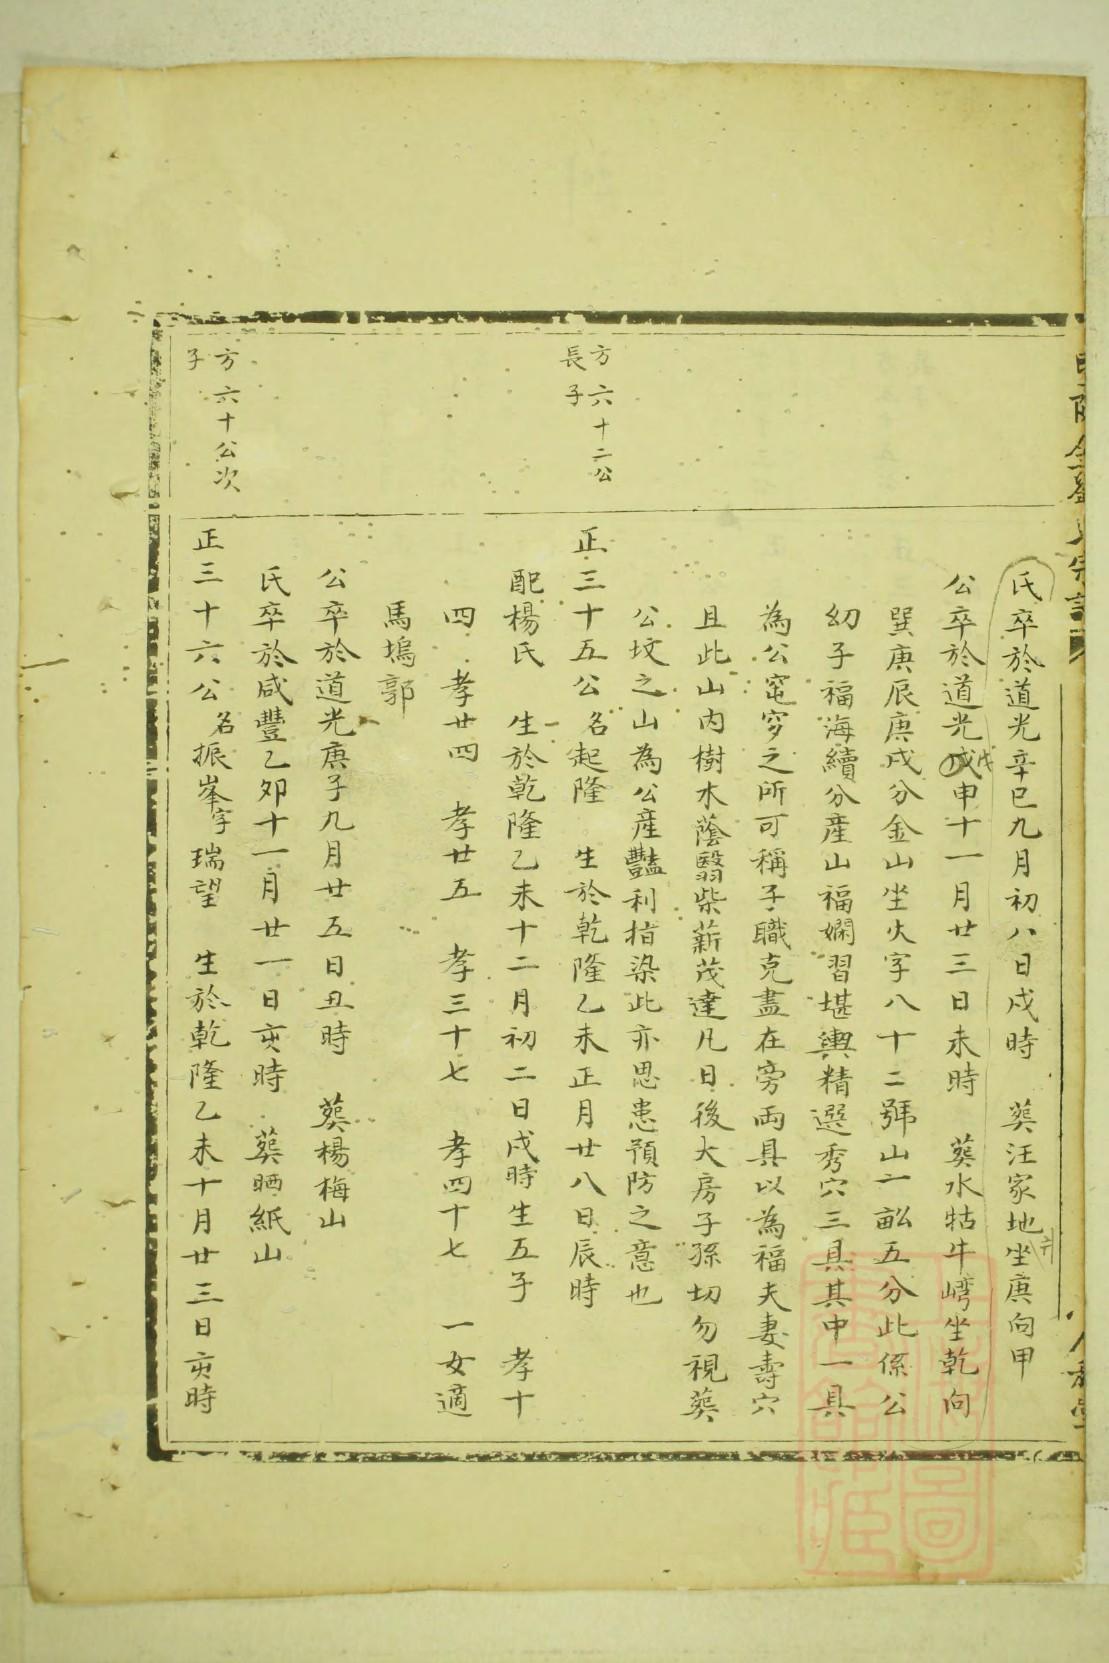 氏卒於道光辛巳九月初八日戌時　葬汪家地坐庚向甲
公卒於道光戊申十一月廿三日未時　葬水牯牛嶹坐乾向
巽庚辰庚戌分金山坐火字八十二號山一畝五分此係公
幼子福海續分産山福嫻習堪輿精選秀穴三具其中一具
為公窀穸之所可稱子職克盡在旁両具以為福夫妻壽穴
且此山内樹木蔭翳柴薪茂達凡日後大房子孫切勿視葬
公坟之山為公産豔利指染此亦思患預防之意也
方六十二公
長子
正三十五公　名起隆　生於乾隆乙未正月廿八日辰時
配楊氏　生於乾隆乙未十二月初二日戌時生五子　孝十
四　孝廿四　孝廿五　孝三十七　孝四十七　一女適
馬塢郭
公卒於道光庚子九月廿五日丑時　葬楊梅山
氏卒於咸豐乙卯十一月廿一日亥時　葬晒紙山
方六十公次
子
正三十六公　名振峯字瑞望　生於乾隆乙未十月廿三日亥時